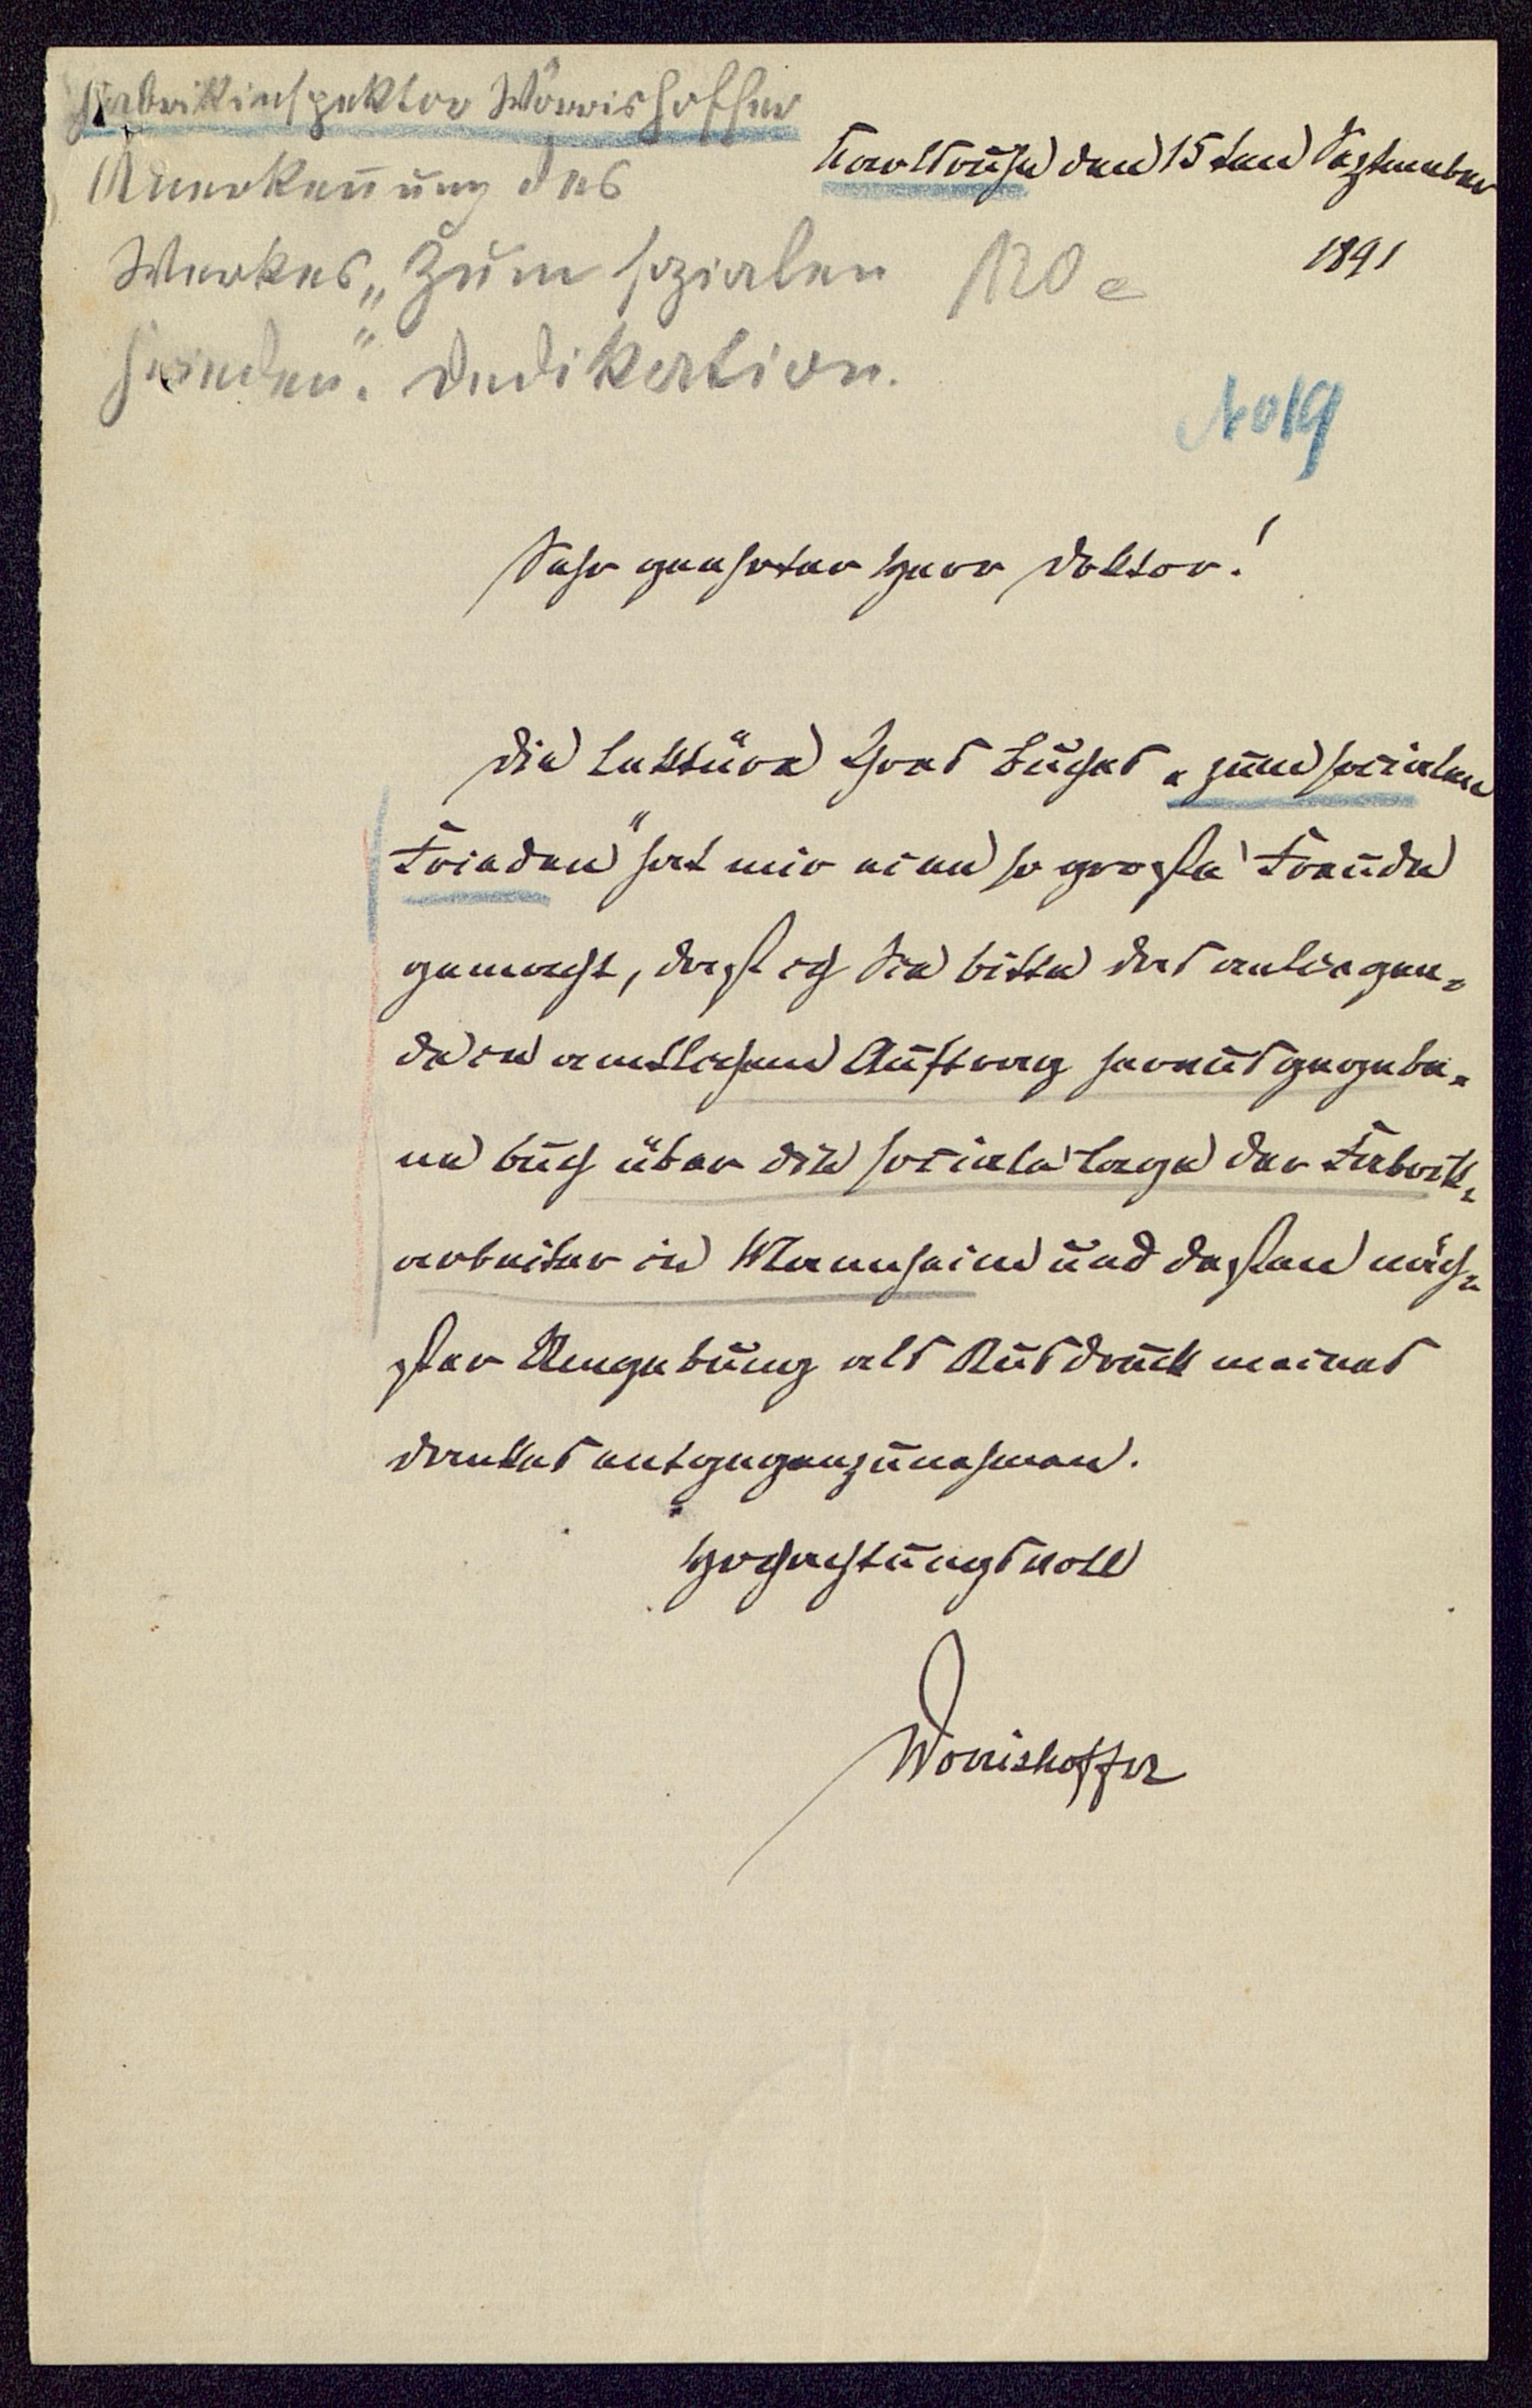 Fabrikinspektor Wörrishoffer
Anerkennung des
Werkes „Zum sozialen
Frieden". Dedikation.
120 e
Karlsruhe den 15ten September
1891
No 19
Sehr geehrter Herr Doktor!
Die Lektüre Ihres Buches „zum socialen
Frieden" hat mir eine so große Freude
gemacht, daß ich Sie bitte das anliegen-
de im amtlichem Auftrag herausgegebe-
ne Buch über die sociale Lage der Fabrik-
arbeiter in Mannheim und dessen näch-
ster Umgebung als Ausdruck meines
Dankes entgegenzunehmen.
Hochachtungsvoll
Wörrishoffer